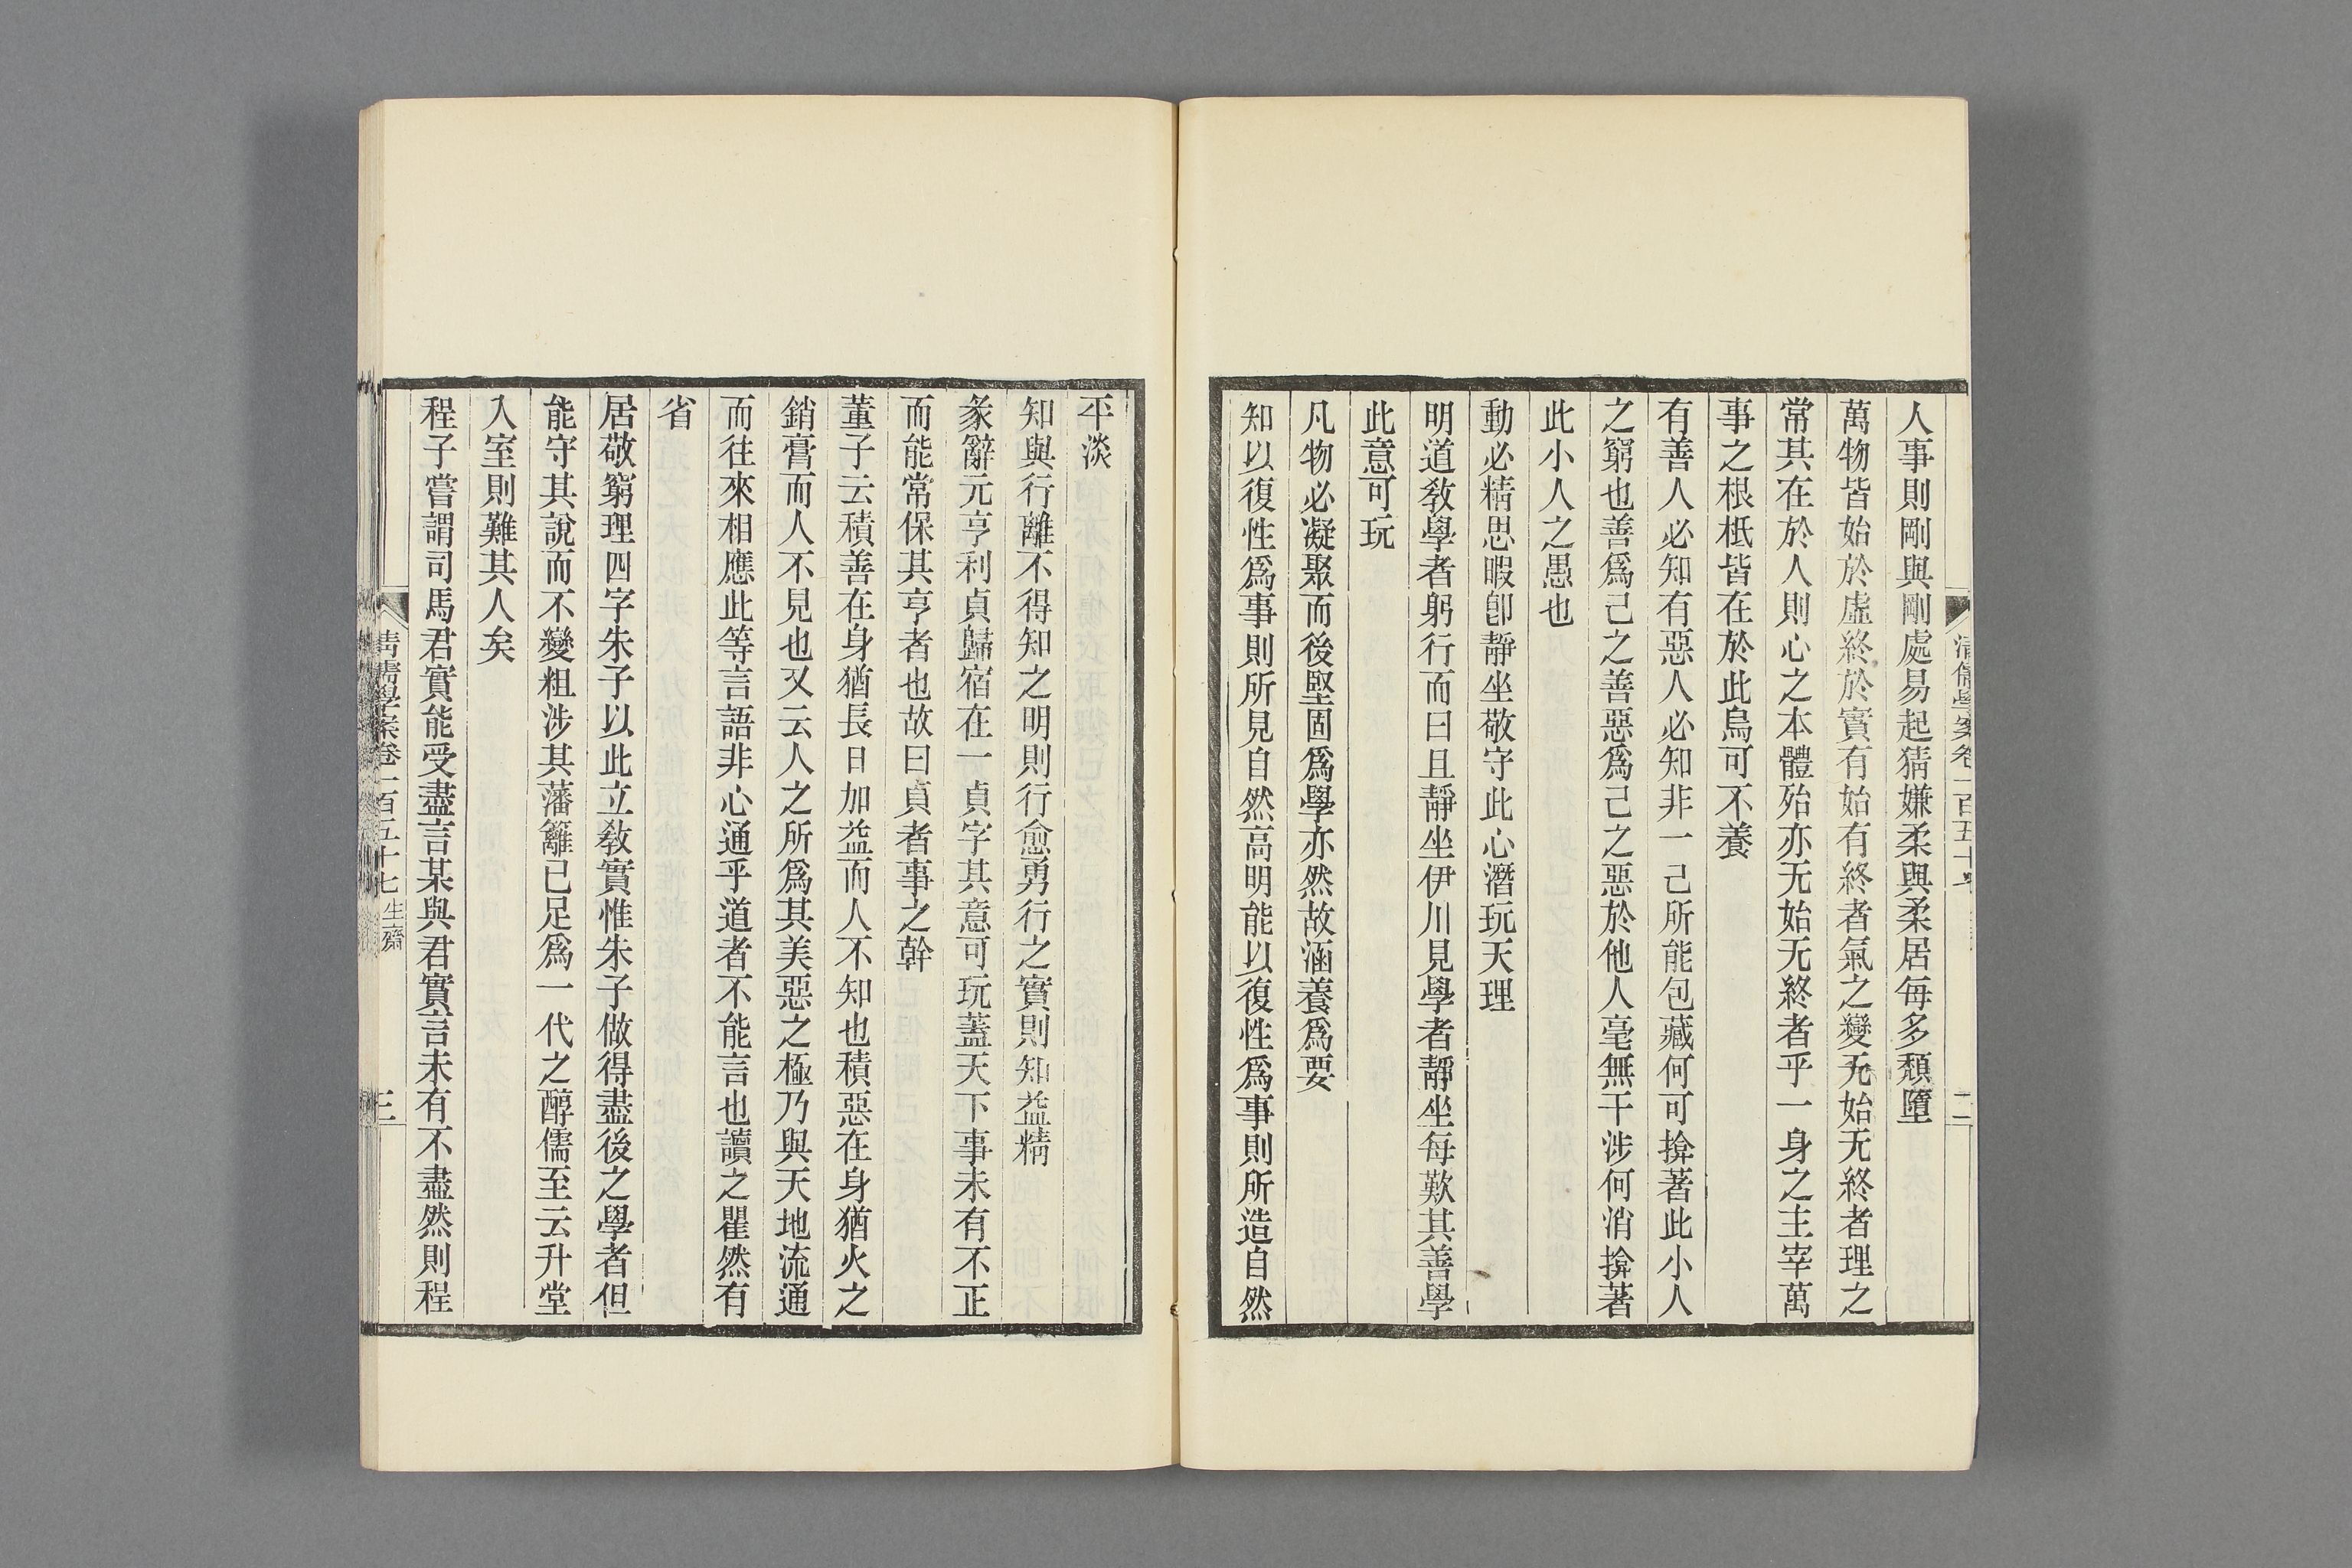 清儒學案卷一百五十七
二
人事則剛與剛處易起猜嫌柔與柔居每多頹墮
萬物皆始於虛終於實有始有終者氣之變无始无終者理之
常其在於人則心之本體殆亦无始无終者乎一身之主宰萬
事之根柢皆在於此烏可不養
有善人必知有惡人必知非一己所能包藏何可揜著此小人
之窮也善爲己之善惡爲己之惡於他人毫無干涉何消揜著
此小人之愚也
動必精思暇卽靜坐敬守此心潛玩天理
明道敎學者躬行而曰且靜坐伊川見學者靜坐每歎其善學
此意可玩
凡物必凝聚而後堅固爲學亦然故涵養爲要
知以復性爲事則所見自然高明能以復性爲事則所造自然
平淡
知與行離不得知之明則行愈勇行之實則知益精
彖辭元亨利貞歸宿在一貞字其意可玩蓋天下事未有不正
而能常保其亨者也故曰貞者事之幹
董子云積善在身猶長日加益而人不知也積惡在身猶火之
銷膏而人不見也又云人之所爲其美惡之極乃與天地流通
而往來相應此等言語非心通乎道者不能言也讀之瞿然有
省
居敬窮理四字朱子以此立敎實惟朱子做得盡後之學者但
能守其說而不變粗涉其藩籬已足爲一代之醇儒至云升堂
入室則難其人矣
程子嘗謂司馬君實能受盡言某與君實言未有不盡然則程
清儒學案卷一百五十七 生齋
三